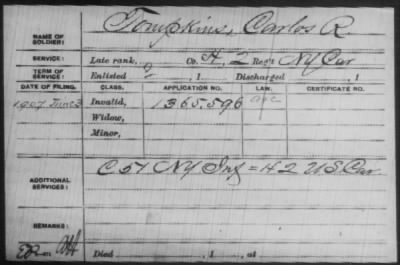 NAME OF SOLDIER: Tompkins, Carlos R.
SERVICE: Late rank, Co. H, 2 Reg't NY Cav
TERM OF SERVICE: Enlisted , 1 Discharged , 1
DATE OF FILING. CLASS. APPLICATION NO. LAW. CERTIFICATE NO.
1907 June 3 Invalid, 1365.596
Widow,
Minor,
ADDITIONAL SERVICES: C 51 NY Inf = H 2 U.S. Cav.
REMARKS:
Died , 1 , at